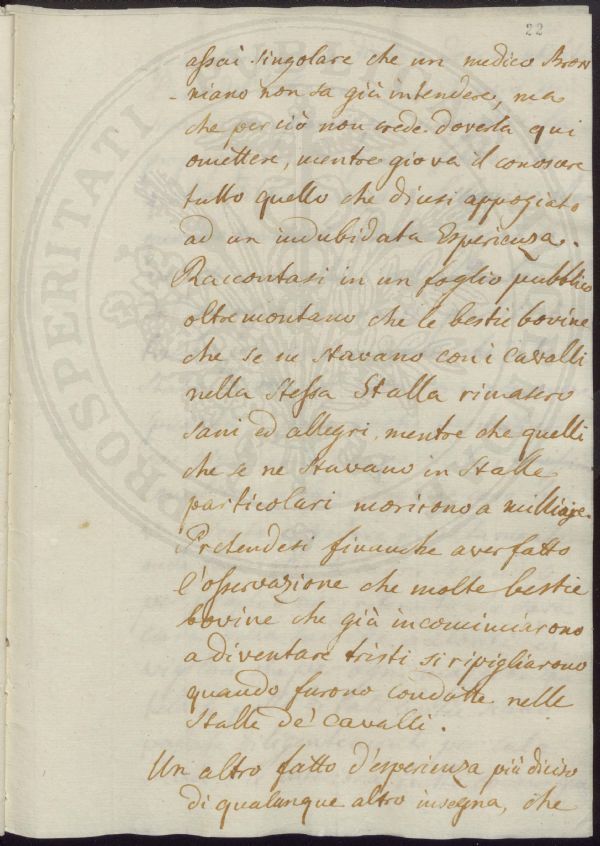 22
assai singolare che un medico Brow
niano non sa già intendere, ma
che perciò non crede doverla qui
omettere, mentre giova il conoscere
tutto quello che dicesi appogiato
ad un indubidata Esperienza.
Raccontasi in un foglio pubblico
oltremontano che le bestie bovine
che se ne stavano con i Cavalli
nella stessa Stalla rimasero
sani ed allegri, mentre che quelli
che se ne stavano in stalle
particolari morirono a milliaje.
Pretendesi finanche aver fatto
l'osservazione che molte bestie
bovine che già incominciarono
a diventare tristi si ripigliarono
quando furono condotte nelle
Stalle de' Cavalli.
Un altro fatto d'esperienza più deciso
di qualunque altro insegna, che
PROSPERITATI